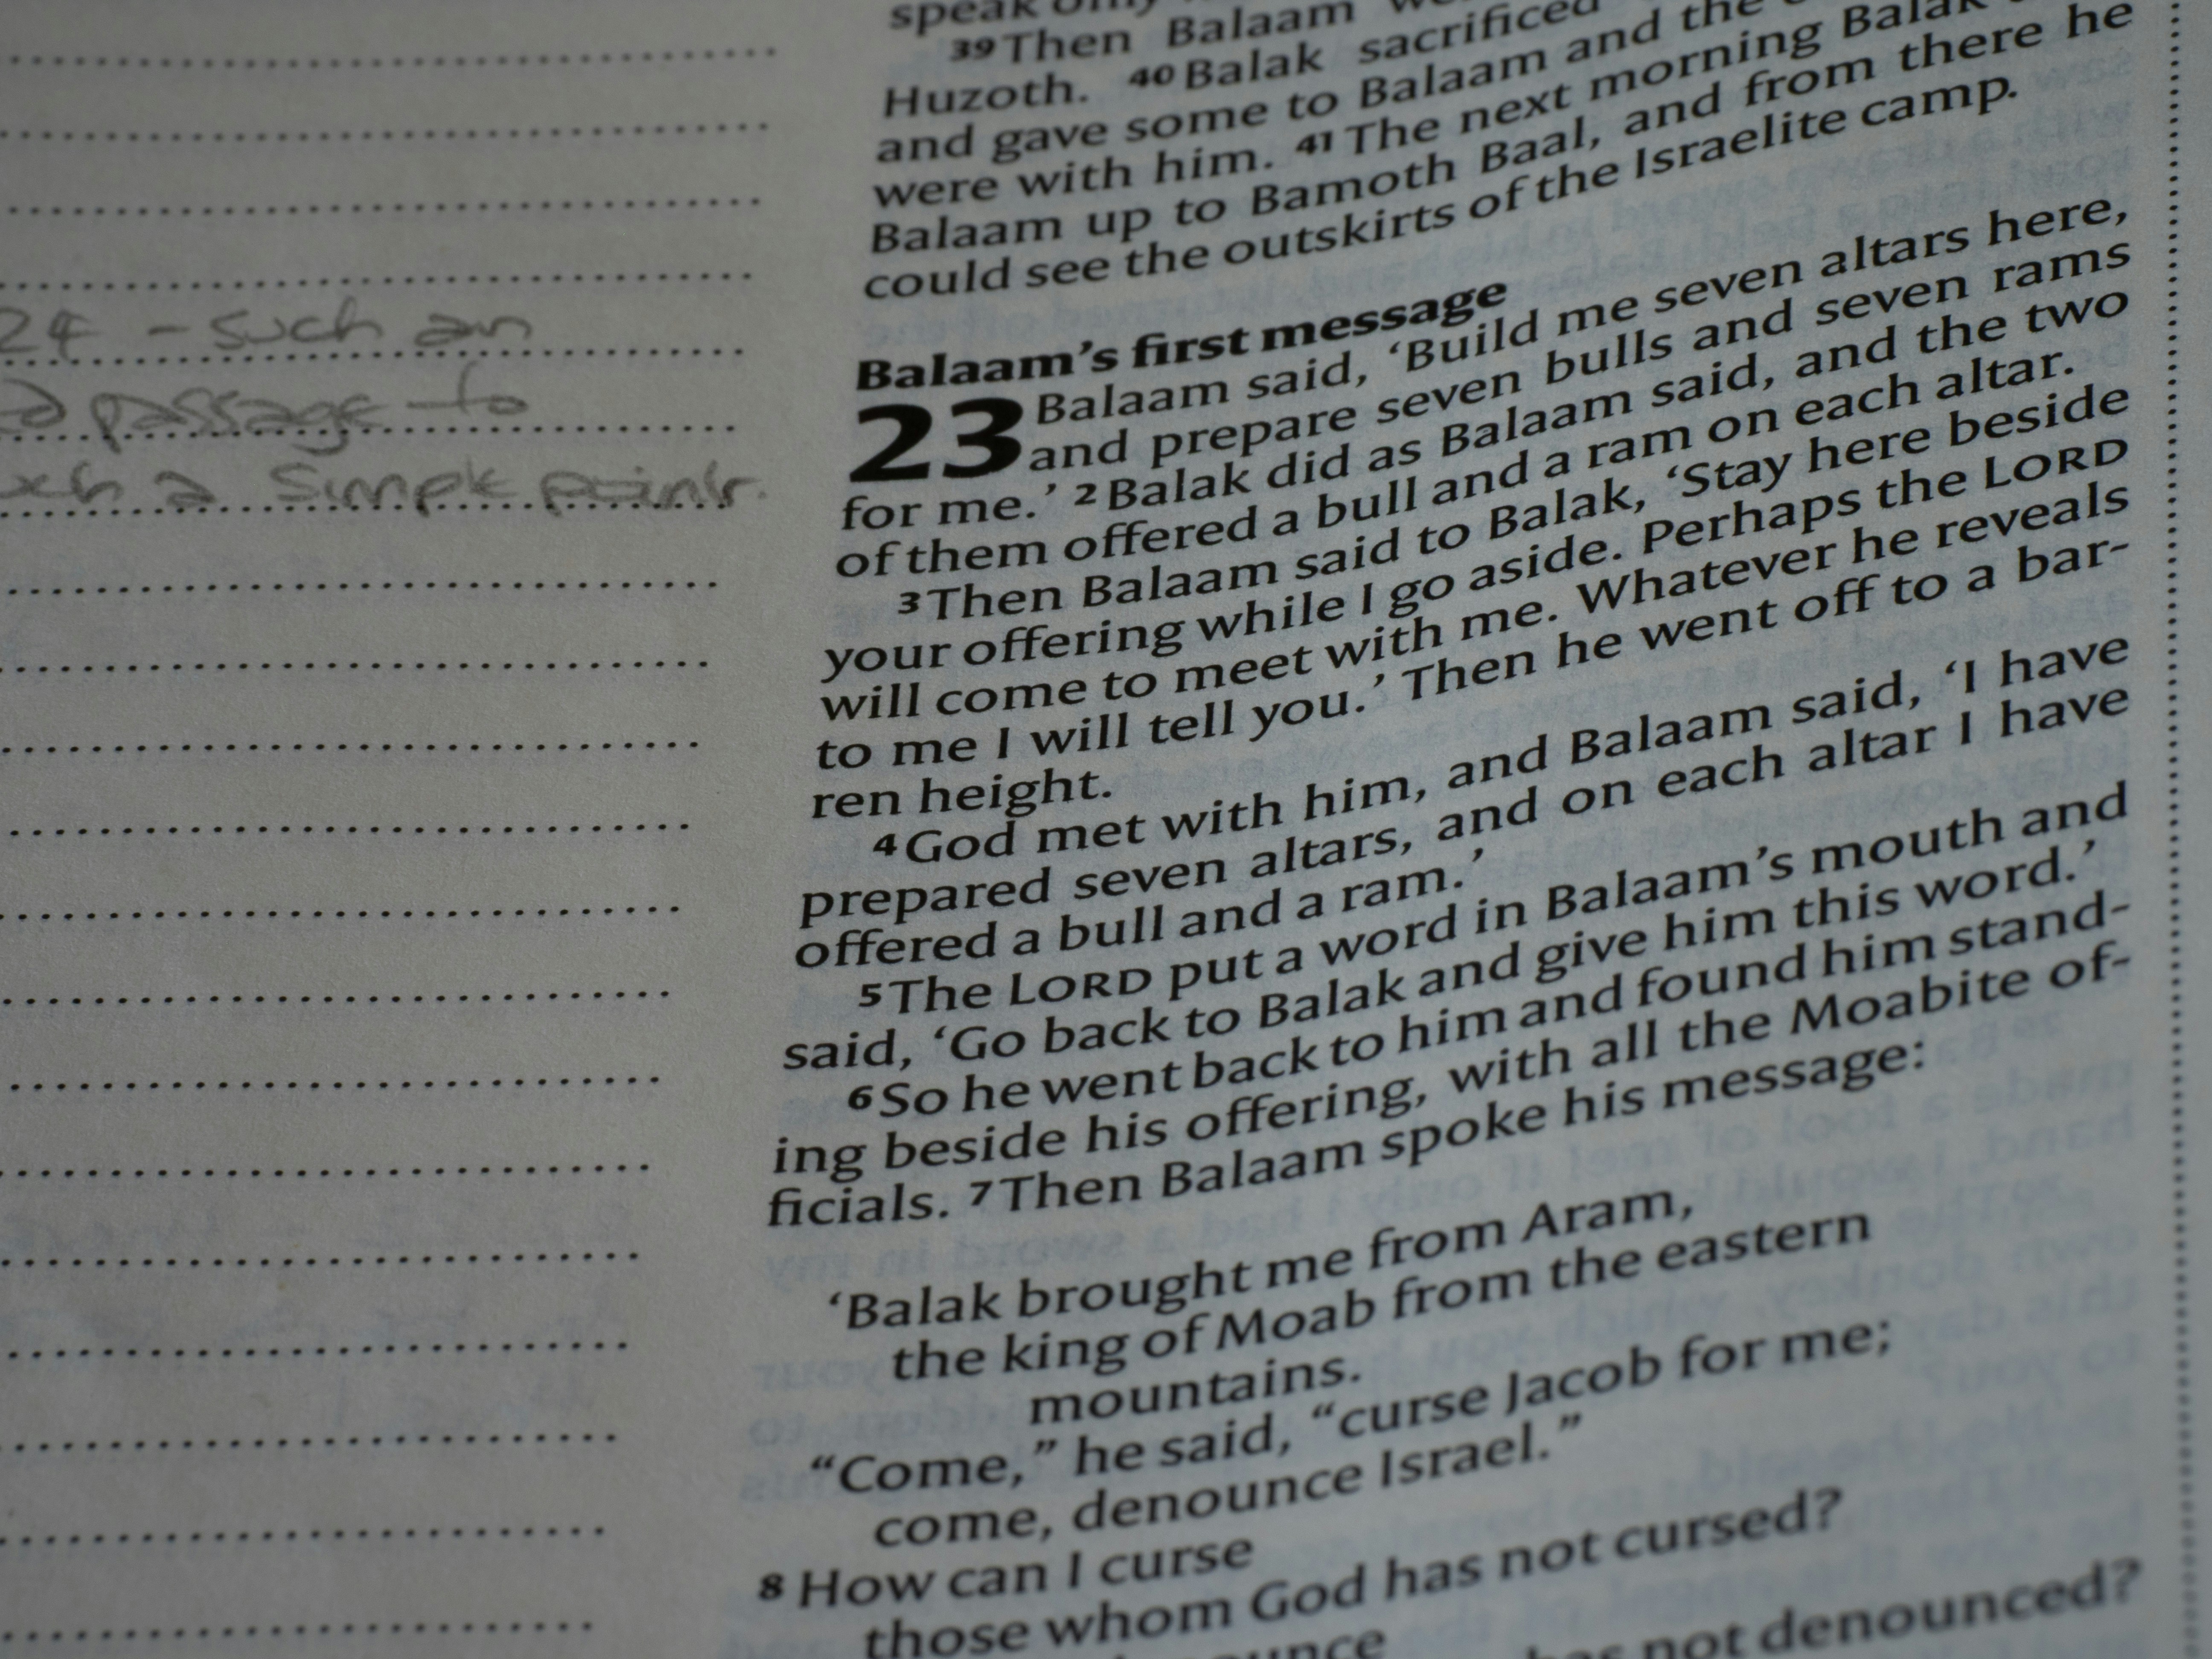 24 - such an
passage to
a simple point.
speak only
39 Then Balaam
Huzoth. 40 Balak sacrificed
and gave some to Balaam and the
were with him. 41 The next morning Balak
Balaam up to Bamoth Baal, and from there he
could see the outskirts of the Israelite camp.
Balaam’s first message
23 Balaam said, ‘Build me seven altars here,
and prepare seven bulls and seven rams
for me.’ 2 Balak did as Balaam said, and the two
of them offered a bull and a ram on each altar.
3 Then Balaam said to Balak, ‘Stay here beside
your offering while I go aside. Perhaps the LORD
will come to meet with me. Whatever he reveals
to me I will tell you.’ Then he went off to a bar-
ren height.
4 God met with him, and Balaam said, ‘I have
prepared seven altars, and on each altar I have
offered a bull and a ram.’
5 The LORD put a word in Balaam’s mouth and
said, ‘Go back to Balak and give him this word.’
6 So he went back to him and found him stand-
ing beside his offering, with all the Moabite of-
ficials. 7 Then Balaam spoke his message:
‘Balak brought me from Aram,
the king of Moab from the eastern
mountains.
“Come,” he said, “curse Jacob for me;
come, denounce Israel.”
8 How can I curse
those whom God has not cursed?
has not denounced?